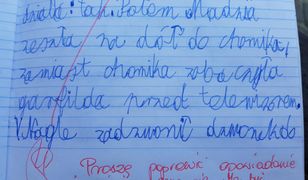 działa: tak. Potem Madzia
zeszła na dół do chomika,
zamiast chomika zobaczyła
garfilda przed telewizorem.
Nagle zadzwonił dzwonek do
Proszę poprawić opowiadanie